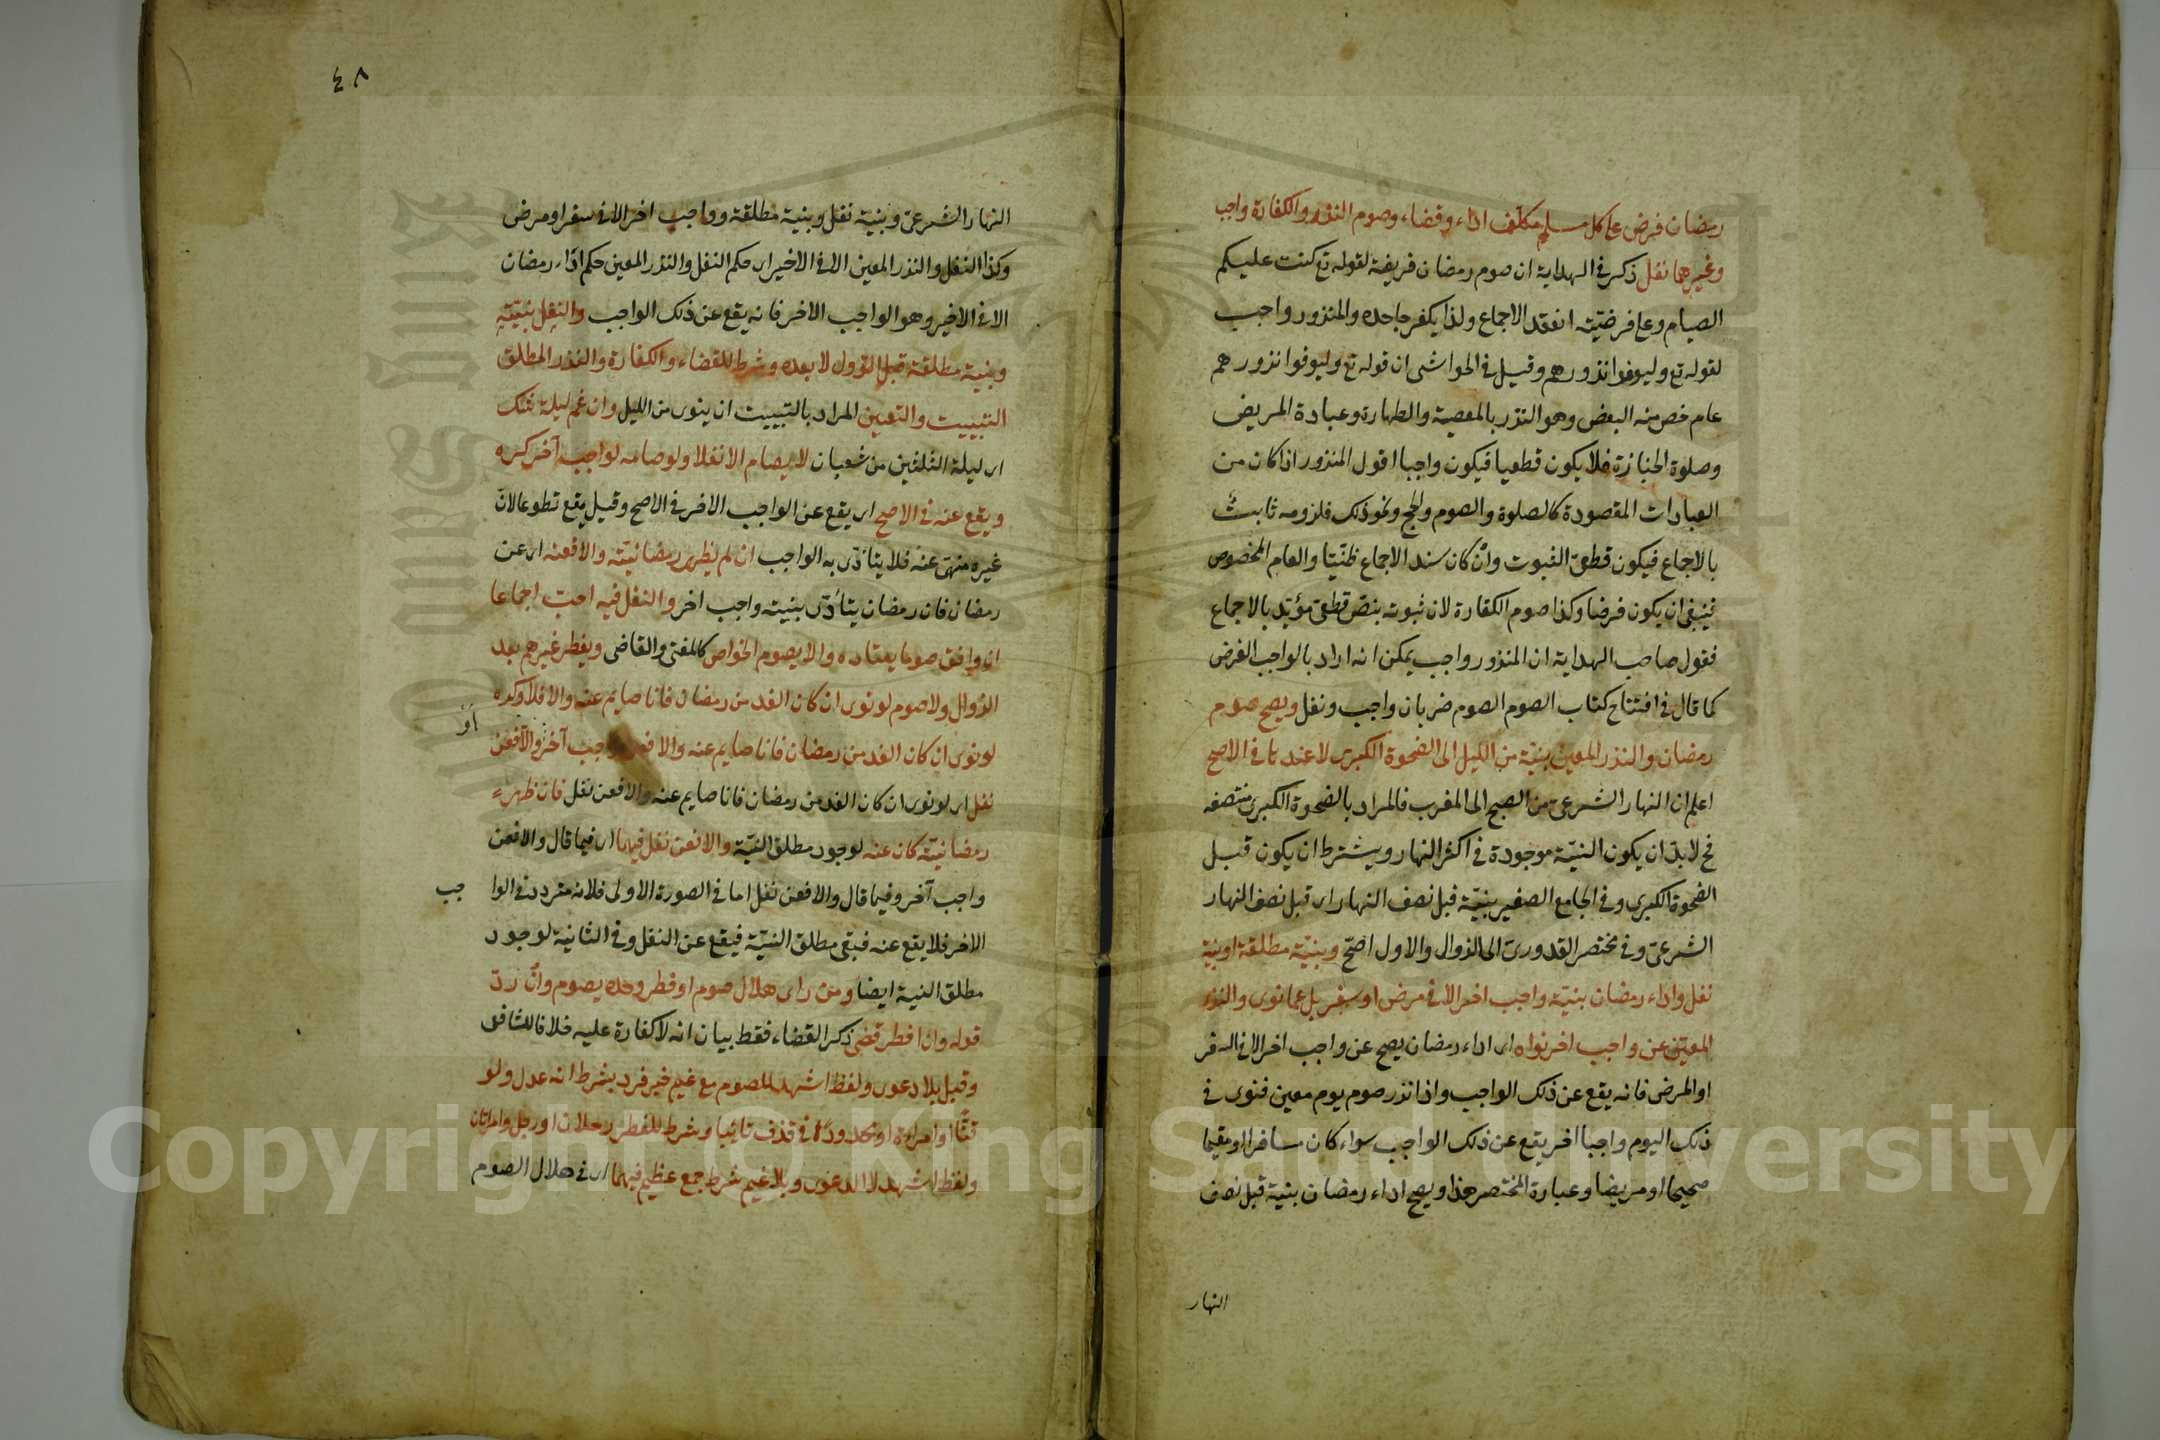 رمضان فرض على كل مسلم مكلف اداء وقضاء وصوم النذر والكفارة واجب
وغيرهما نفل ذكر في الهداية ان صوم رمضان فريضة لقوله تع كتب عليكم
الصيام وعلى فرضيته انعقد الاجماع ولذا يكفر جاحده والمنذور واجب
لقوله تع وليوفوا نذورهم وقيل في الحواشى ان قوله تع وليوفوا نذورهم
عام خص منه البعض وهو النذر بالمعصية والطهارة وعيادة المريض
وصلوة الجنازة فلا يكون قطعيا فيكون واجبا اقول المنذور اذا كان من
العبادات المقصودة كالصلوة والصوم والحج ونحو ذلك فلزومه ثابت
بالاجماع فيكون قطعى الثبوت وان كان سند الاجماع ظنيا والعام المخصوص
فينبغى ان يكون فرضا وكذا صوم الكفارة لان ثبوته بنص قطعى مؤيد بالاجماع
فقول صاحب الهداية ان المنذور واجب يمكن انه اراد بالواجب الفرض
كما قال في افتتاح كتاب الصوم الصوم ضربان واجب ونفل ويصح صوم
رمضان والنذر المعين بنية من الليل الى الضحوة الكبرى لا عندها في الاصح
اعلم ان النهار الشرعى من الصبح الى المغرب فالمراد بالضحوة الكبرى منتصفه
فح لا بد ان يكون النية موجودة في اكثر النهار ويشترط ان يكون قبل
الضحوة الكبرى وفي الجامع الصغير بنية قبل نصف النهار اى قبل نصف النهار
الشرعى وفي مختصر القدورى الى الزوال والاول اصح وبنية مطلقة او بنية
نفل واداء رمضان بنية واجب اخر الا في مرض او سفر بل عما نوى والنذر
المعين عن واجب اخر نواه اى اداء رمضان يصح عن واجب اخر الا في السفر
او المرض فانه يقع عن ذلك الواجب واذا نذر صوم يوم معين فنوى في
ذلك اليوم واجبا اخر يقع عن ذلك الواجب سواء كان مسافرا او مقيما
صحيحا او مريضا وعبارة المختصر هذا ويصح اداء رمضان بنية قبل نصف
النهار
٤٨
النهار الشرعى وبنية نفل وبنية مطلقة وواجب اخر الا في سفر او مرض
وكذا النفل والنذر المعين الا في الاخير اى حكم النفل والنذر المعين حكم اداء رمضان
الا في الاخير وهو الواجب الاخر فانه يقع عن ذلك الواجب والنفل بنيته
وبنية مطلقة قبل الزوال لا بعده وشرط للقضاء والكفارة والنذر المطلق
التبييت والتعيين المراد بالتبييت ان ينوى من الليل وان غم ليلة الشك
اى ليلة الثلثين من شعبان لا يصام الا نفلا ولو صامه لواجب آخر كره
ويقع عنه في الاصح اى يقع عن الواجب الاخر في الاصح وقيل يقع تطوعا لان
غيره منهى عنه فلا يتأدى به الواجب ان لم يظهر رمضانيته والا فعنه اى عن
رمضان فان رمضان يتأدى بنية واجب اخر والنفل فيه احب اجماعا
ان وافق صوما يعتاده والا يصوم الخواص كالمفتى والقاضى ويفطر غيرهم بعد
الزوال ولا صوم لو نوى ان كان الغد من رمضان فانا صايم عنه والا فلا وكره
لو نوى ان كان الغد من رمضان فانا صايم عنه والا فعن واجب آخر والا فعن
او
نفل اى لو نوى ان كان الغد من رمضان فانا صايم عنه والا فعن نفل فان ظهر
رمضانيته كان عنه لوجود مطلق النية والا فعن نفل فيهما اى فيما قال والا فعن
واجب آخر وفيما قال والا فعن نفل اما في الصورة الاولى فلانه متردد في الوا جب
الاخر فلا يقع عنه فبقى مطلق النية فيقع عن النفل وفي الثانية لوجود
مطلق النية ايضا ومن راى هلال صوم او فطر وحده يصوم وان رد
قوله وان افطر قضى ذكر القضاء فقط بيان انه لا كفارة عليه خلافا للشافعى
وقبل بلا دعوى ولفظ اشهد للصوم مع غيم خبر فرد بشرط انه عدل ولو
قنا او امراة او محدودا في قذف تائبا وشرط للفطر رجلان او رجل وامراتان
ولفظ اشهد لا الدعوى وبلا غيم شرط جمع عظيم فيهما اى في هلال الصوم
Copyright © King Saud University